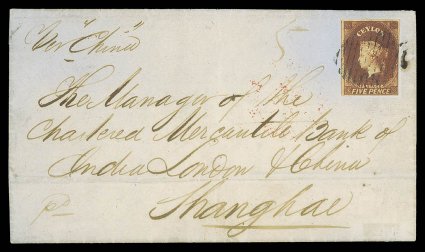 Per "China"
5
CEYLON
FIVE PENCE
The Manager of the
Chartered Mercantile Bank of
India London & China
Shanghae